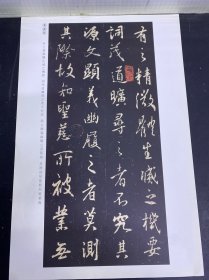 有之精微體生滅之機要
詞茂道曠尋之者不究其
源文顯義幽履之者莫測
其際故知聖慈所被業無